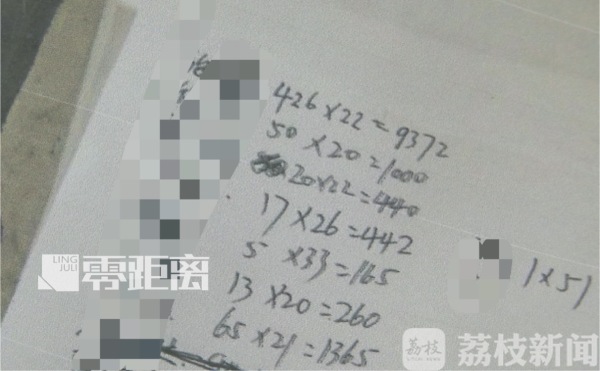 426×22=9372
50×20=1000
20×22=440
17×26=442
5×33=165
1×51
13×20=260
65×21=1365
LING JULI 零距离
荔枝 荔枝新闻